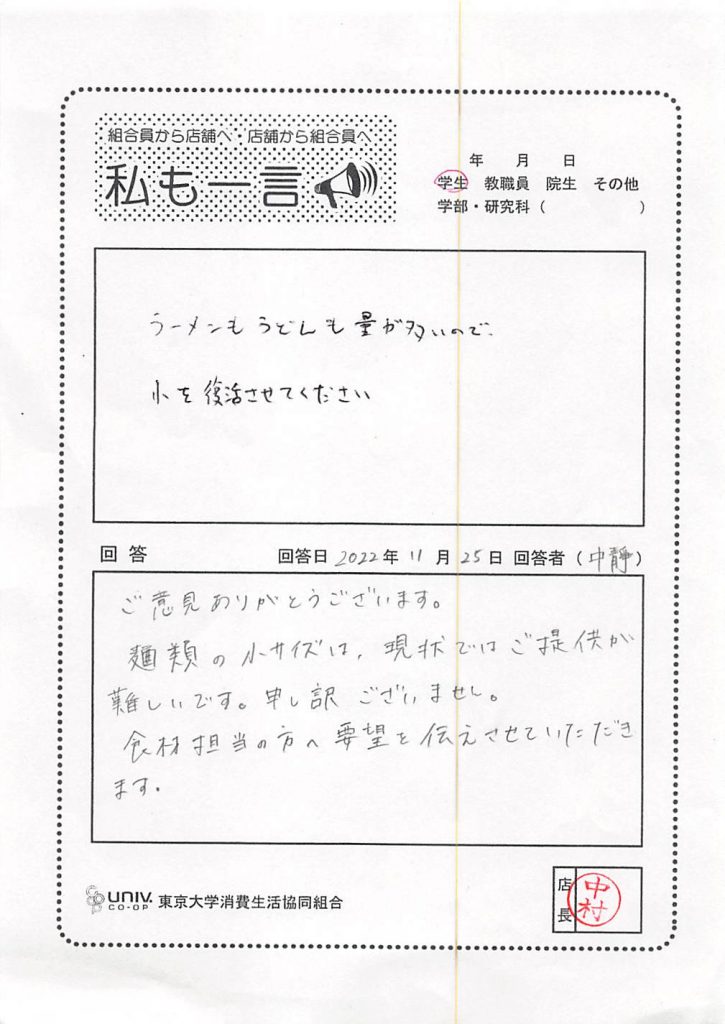 組合員から店舗へ・店舗から組合員へ
私も一言
年 月 日
学生 教職員 院生 その他
学部・研究科( )
ラーメンもうどんも量が多いので、
小を復活させてください
回答 回答日 2022年 11月 25日 回答者(中靜)
ご意見ありがとうございます。
麺類の小サイズは、現状ではご提供が
難しいです。申し訳ございません。
食材担当の方へ要望を伝えさせていただき
ます。
UNIV.
CO-OP
東京大学消費生活協同組合
店長
中村